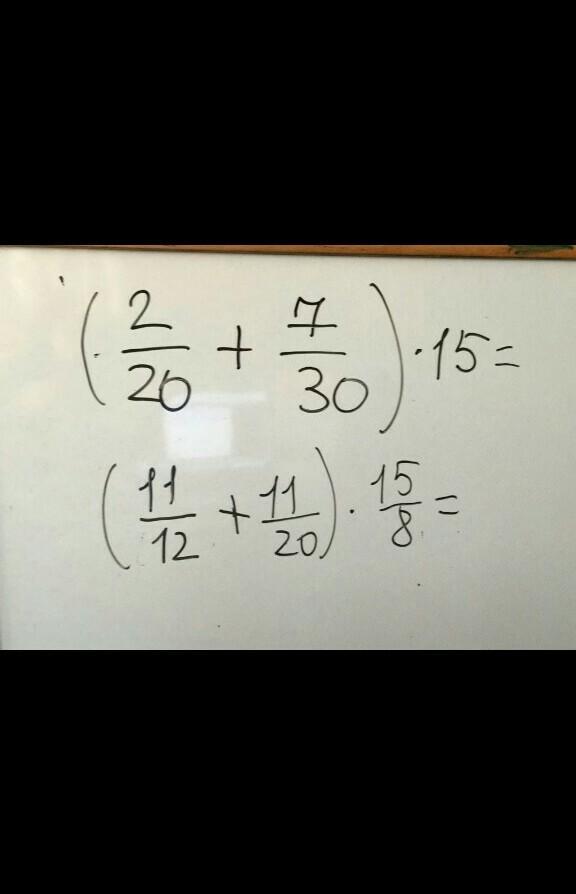 (2/20 + 7/30) · 15 =
(11/12 + 11/20) · 15/8 =